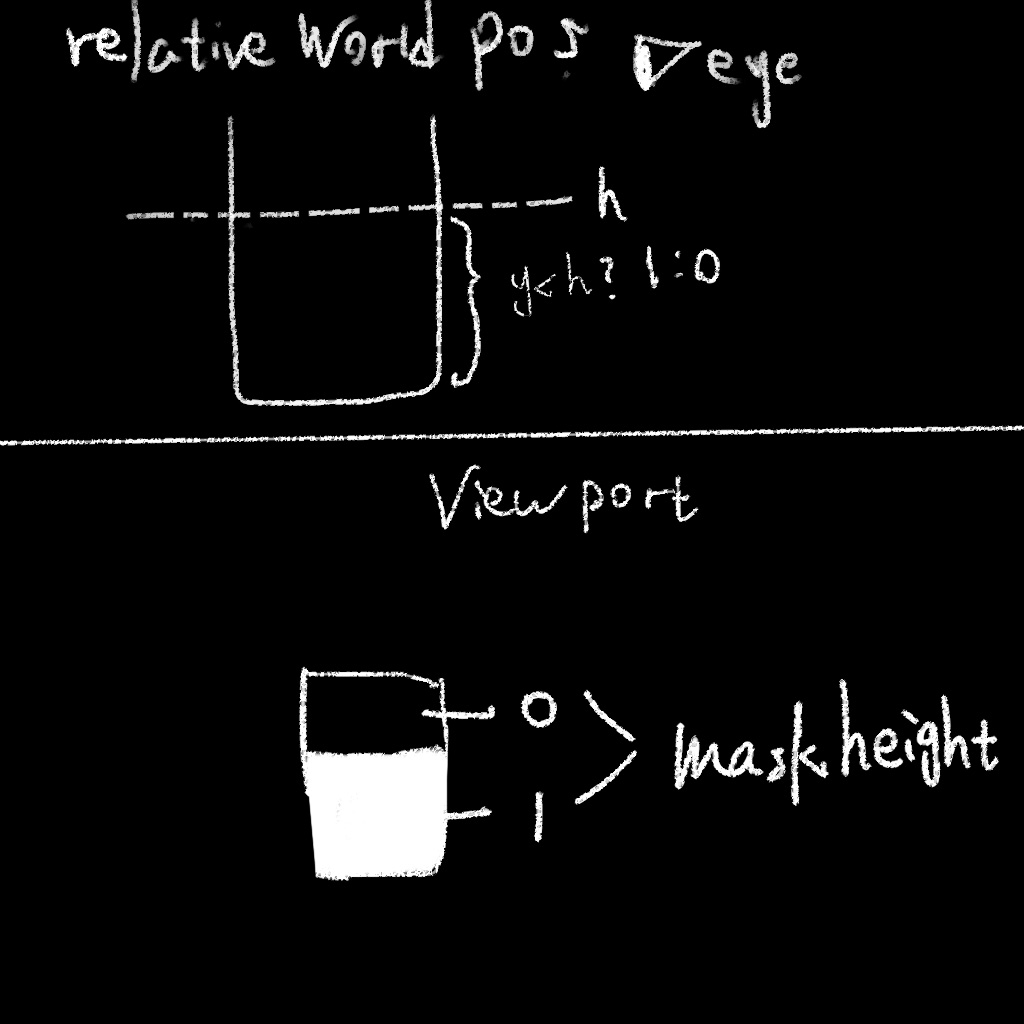 relative World pos eye
h
y<h? 1:0
Viewport
0
mask.height
1